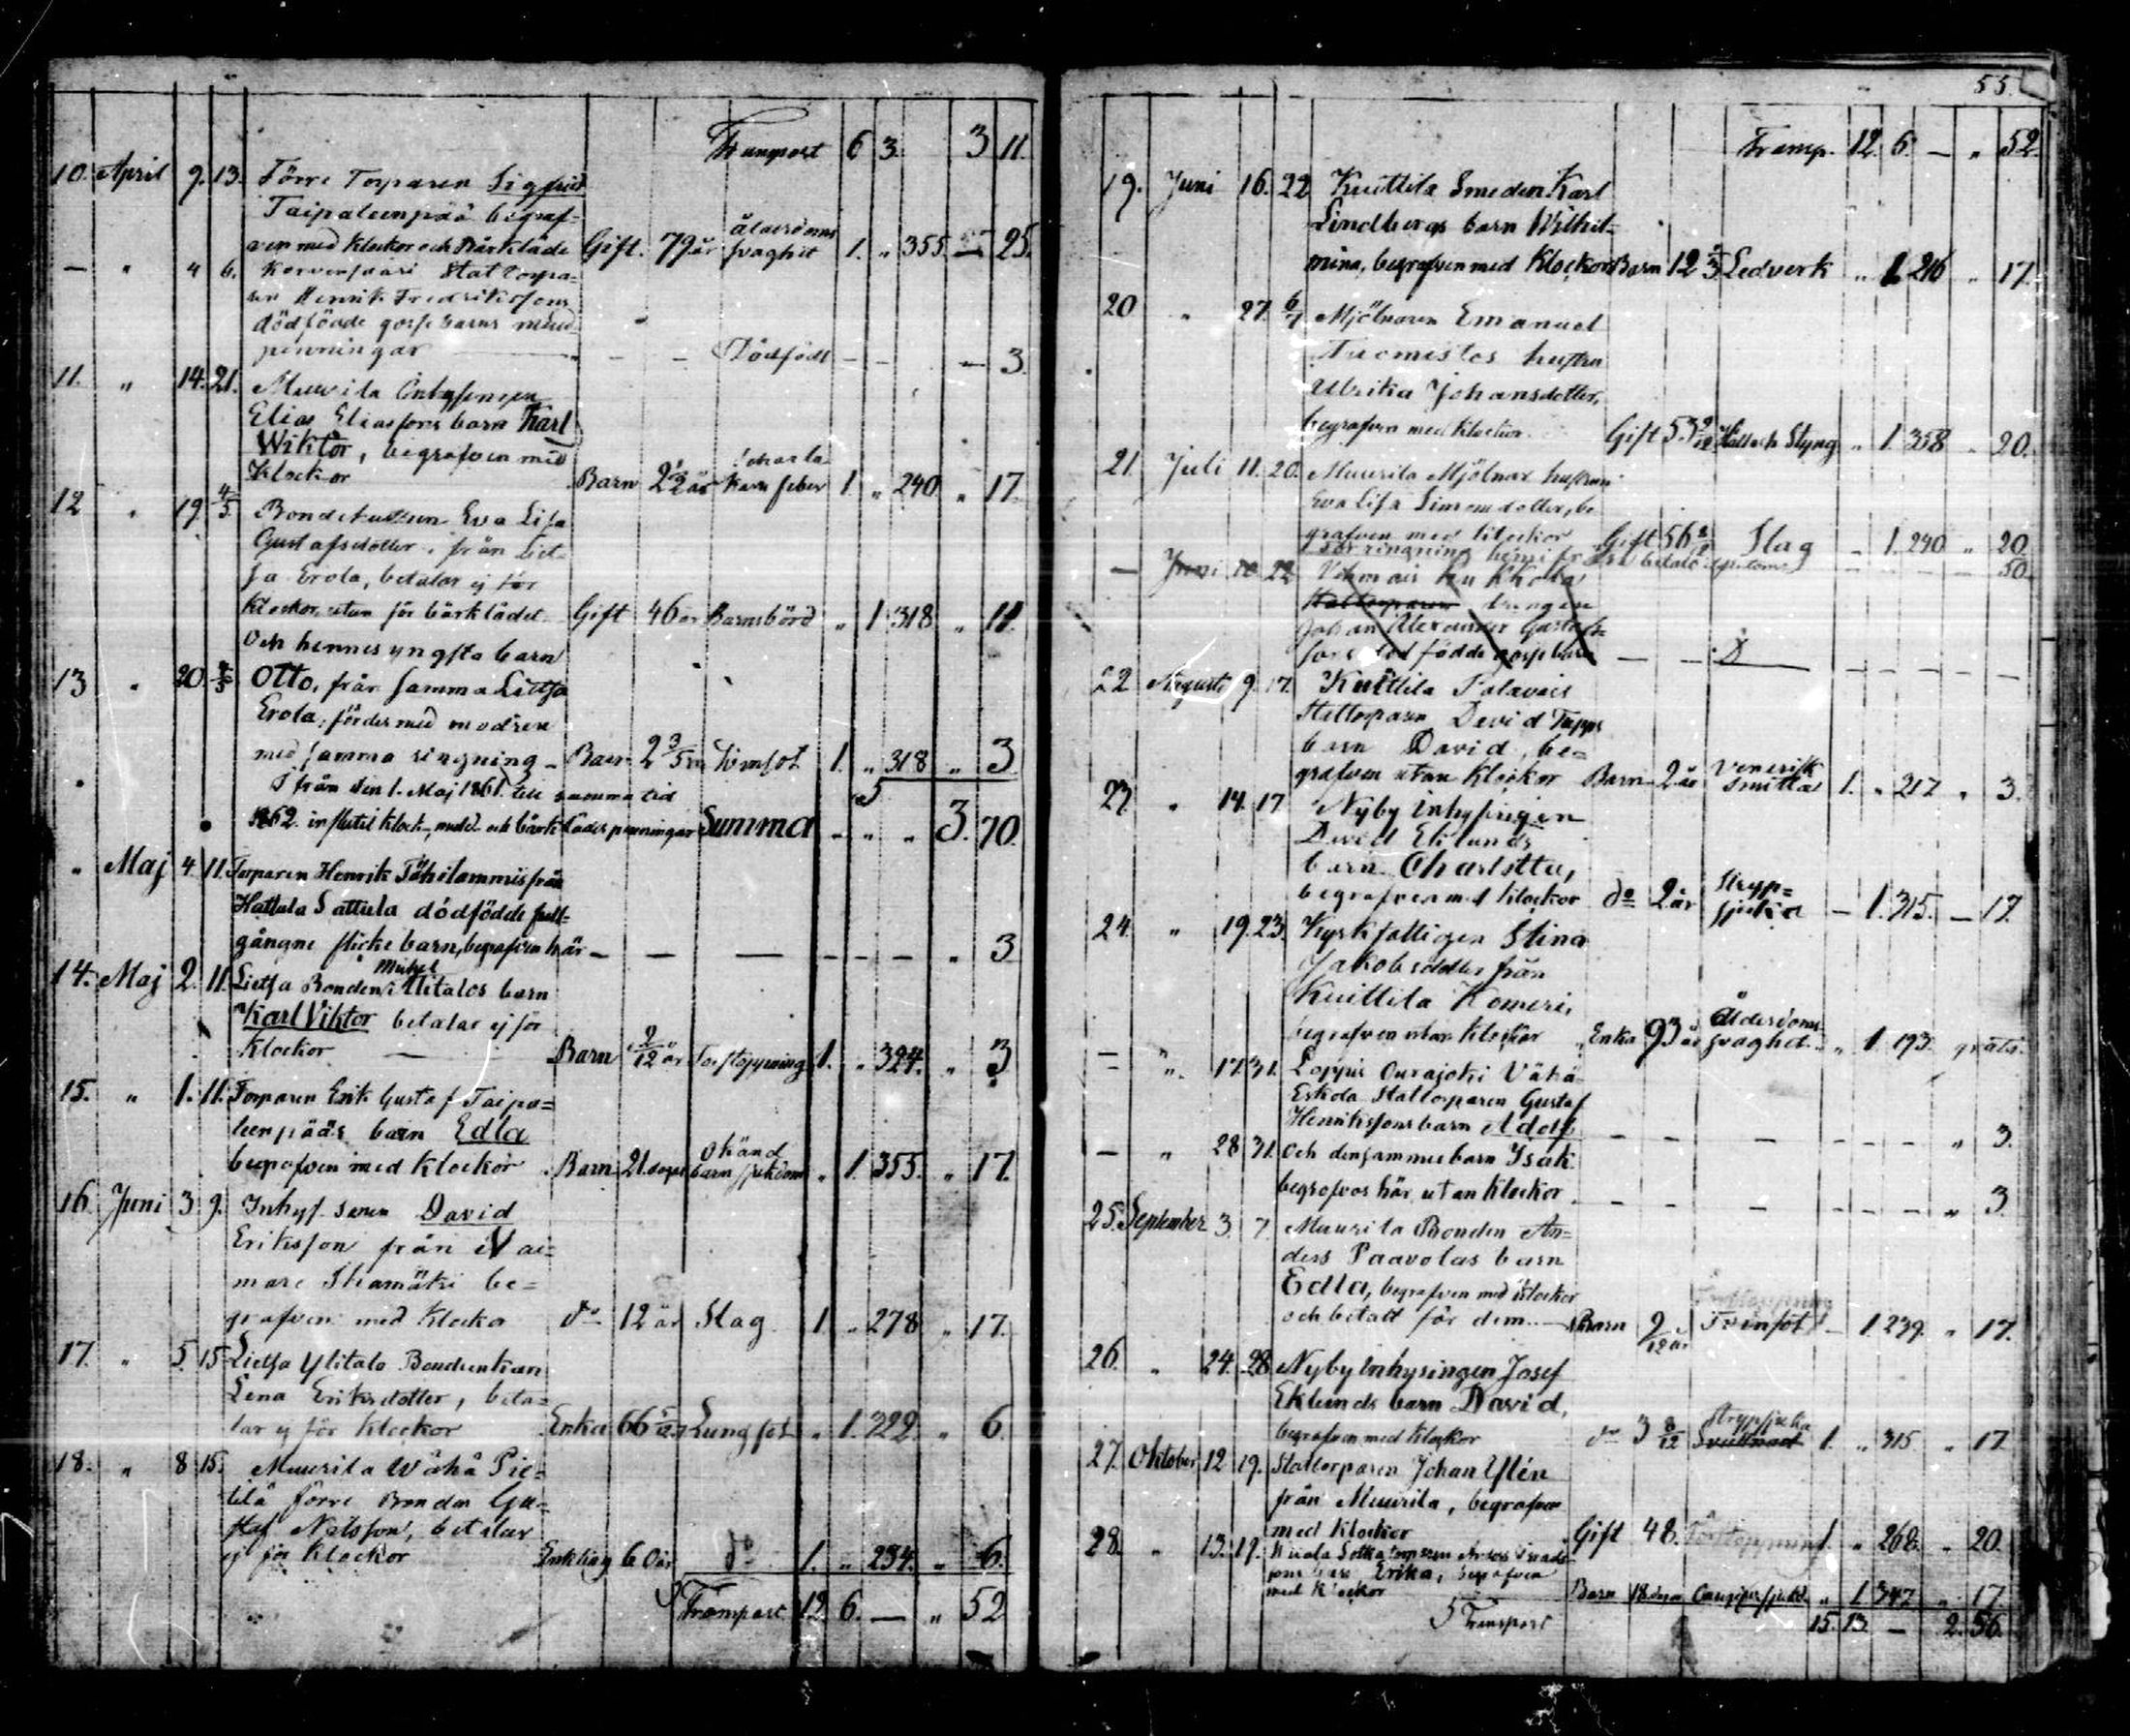 Transport 6 3. 3 11.
10. April 9. 13. Förre Torparen Sigfrid
Taipaleenpää begraf-
ven med klockor och Bårkläde Gift. 79 år ålderdoms svaghet 1. „ 355. — 25.
— „ 4 6. Stattorpa-
ren Henrik Fredrikssons
dödfödde gosse barns mull-
penningar — — Dödfödt — — — 3.
11. „ 14. 21. Muurila Inhysingen
Elias Eliassons barn Karl
Wiktor, begrafven med
klockor Barn 2 1/2 år feber 1. „ 240. „ 17.
12 „ 19 4/5 Bondehustrun Eva Lisa
Gustafsdotter, från Liet-
sa Erola, betalar ej för
klockor, utan för bårklädet. Gift 46 år Barnsbörd „ 1. 318 „ 11.
Och hennes yngsta barn
13 „ 20. 4/5 Otto, från samma Lietsa
Erola; fördes med modren
med samma ringning — Barn 2 3/5 år 1. „ 318 „ 3
Ifrån den 1. Maj 1861 till samma tid
1862 influtit klock-, mull- och bårklädespenningar Summa — „ „ 3. 70.
„ Maj 4 11. Torparen Henrik från
Hattula Sattula dödfödde full-
gångne flicke barn, begrafven här — — — — — — „ 3
14. Maj 2. 11. Lietsa Bonden Mickel Ylitalos barn
Karl Viktor betalar ej för
klockor — Barn 2/12 år Torstoppning 1. „ 324. „ 3
15. „ 1. 11. Torparen Erik Gustaf Taipa=
leenpääs barn Edla
begrafven med klockor. Barn 21 dagar okänd barn sjukdom „ 1. 355. „ 17.
16. Juni 3 9. Inhyssonen David
Eriksson från Nai=
mare be=
grafven med klocka do 12 år Slag 1. „ 278 „ 17.
17. „ 5. 15. Lietsa Ylitalo Bondenkan
Lena Eriksdotter, beta=
lar ej för klockor Enka 66 5/12 Lungsot „ 1. 322. „ 6.
18. „ 8 15. Muurila Wähä Pie=
tilä förre Bonden Gu=
staf Nilsson, betalar
ej för klockor Enkling 60 år do 1. „ 234. „ 6.
Transport 12 6. — „ 52
55.
Transp. 12. 6. — „ 52.
19. Juni 16. 22 Knuttila Smeden Karl
Lindbergs barn Wilhel-
mina, begrafven med klockor Barn 12 2/3 Ledverk „ 1 216 „ 17.
20 „ 27. 6/7 Mjölnaren Emanuel
Tuomistos hustru
Ulrika Johansdotter,
begrafven med klockor. Gift 53 Håll och Styng „ 1. 358 „ 20.
21. Juli 11. 20. Muurila Mjölnar hustrun
Eva Lisa Simonsdotter, be
grafven med klockor Gift 56 Slag „ 1. 240 „ 20
50.
— Juni 22
Stattorparen drängen
Johan Alexander Gustafs-
sons död födde gosse barn — — D — — — — —
22 Augusti 9. 17. Knuttila
Stattorparen David
barn David, be=
grafven utan klockor Barn 2 år Venerisk smitta 1. „ 217 „ 3.
23 „ 14. 17 Nyby inhysingen
David Eklunds
barn Charlotta,
begrafven med klockor do 2 år Stryp= sjuka — 1. 315. — 17.
24. „ 19. 23. Kyrkfattigen Stina
Jakobsdotter från
Knuttila Komeri,
begrafven utan klockor Enka 93 år Ålderdoms svaghet „ 1. 193. gratis.
— „ 17. 31. Loppis Ourajoki Vähä
Eskola Stattorparen Gustaf
Henrikssons barn Adolf — — — — — — „ 3.
— „ 28 31. och densammes barn Isak
begrafvos här, utan klockor — — — — — — „ 3
25. September 3. 7. Muurila Bonden An=
ders Paavolas barn
Edla, begrafven med klockor
och betalt för dem. — Barn 9/12 år — 1. 239. „ 17.
26. „ 24. 28 Nyby Inhysingen Josef
Eklunds barn David,
begrafven med klockor do 3 8/12 Strypsjuka 1. „ 315 „ 17
27. Oktober 12 19. Stattorparen Johan Ylén
från Muurila, begrafven
med klockor Gift 48. Torstoppning 1. „ 268. „ 20.
28. „ 13. 19.
barn Erika, begrafven
med klockor Barn 18 dgr „ 1 347 „ 17.
Transport 15. 13. — 2. 56.